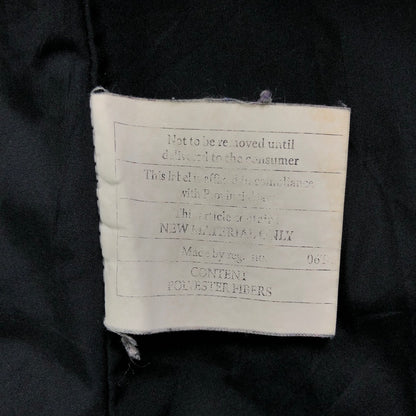 Not to be removed until
delivered to the consumer
This label is affixed in compliance
with Provincial Law
This article contains
NEW MATERIAL ONLY
Made by reg. no. 061
CONTENT
POLYESTER FIBERS